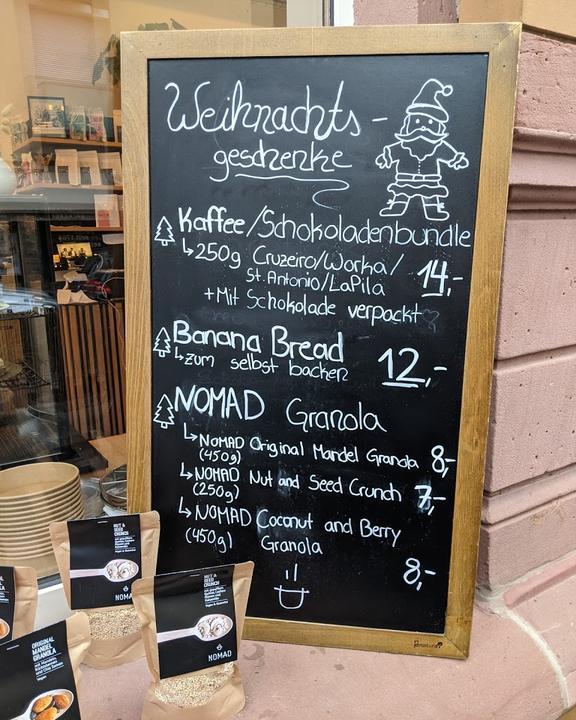 Weihnachts-
geschenke
Kaffee/Schokoladenbundle
↳250g Cruzeiro/Worka/
St.Antonio/LaPila
14,-
+Mit Schokolade verpackt
Banana Bread
↳zum selbst backen
12,-
NOMAD Granola
↳NOMAD Original Mandel Granola
(450g)
8,-
↳NOMAD Nut and Seed Crunch
(250g)
7,-
↳NOMAD Coconut and Berry
(450g) Granola
8,-
NUT &
SEED
CRUNCH
NOMAD
NUT &
SEED
CRUNCH
NOMAD
ORIGINAL
MANDEL
GRANOLA